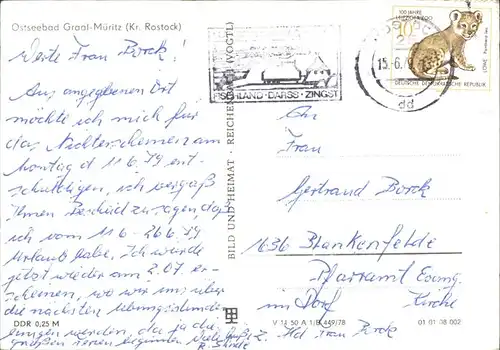 Ostseebad Graal-Müritz (Kr. Rostock)
Werte Frau Borck!
Aus angegebenen Ort
möchte ich mich für
das Nichterscheinen am
Montag d 11.6.79 ent-
schuldigen, ich vergaß
Ihnen Bescheid zu sagen, daß
ich vom 11.6.-26.6.79
Urlaub habe. Ich würde
jetzt wieder am 2.07. er-
scheinen, wo wir uns über
die nächsten Übungsstunden
einigen werden, da ja die
großen Ferien beginnen. Viele Grüße
DDR 0,25 M
BILD UND HEIMAT REICHENBACH (VOGTL)
FISCHLAND-DARSS-ZINGST
15.-6.
dd
100 JAHRE
LEIPZIGER ZOO
10
LÖWE
DEUTSCHE DEMOKRATISCHE REPUBLIK
An
Frau
Gertraud Borck
1636 Blankenfelde
Pfarramt Evang.
im Dorf Kirche
Frau Borck
V 11 50 A 1/B 449/78 01 01 08 002